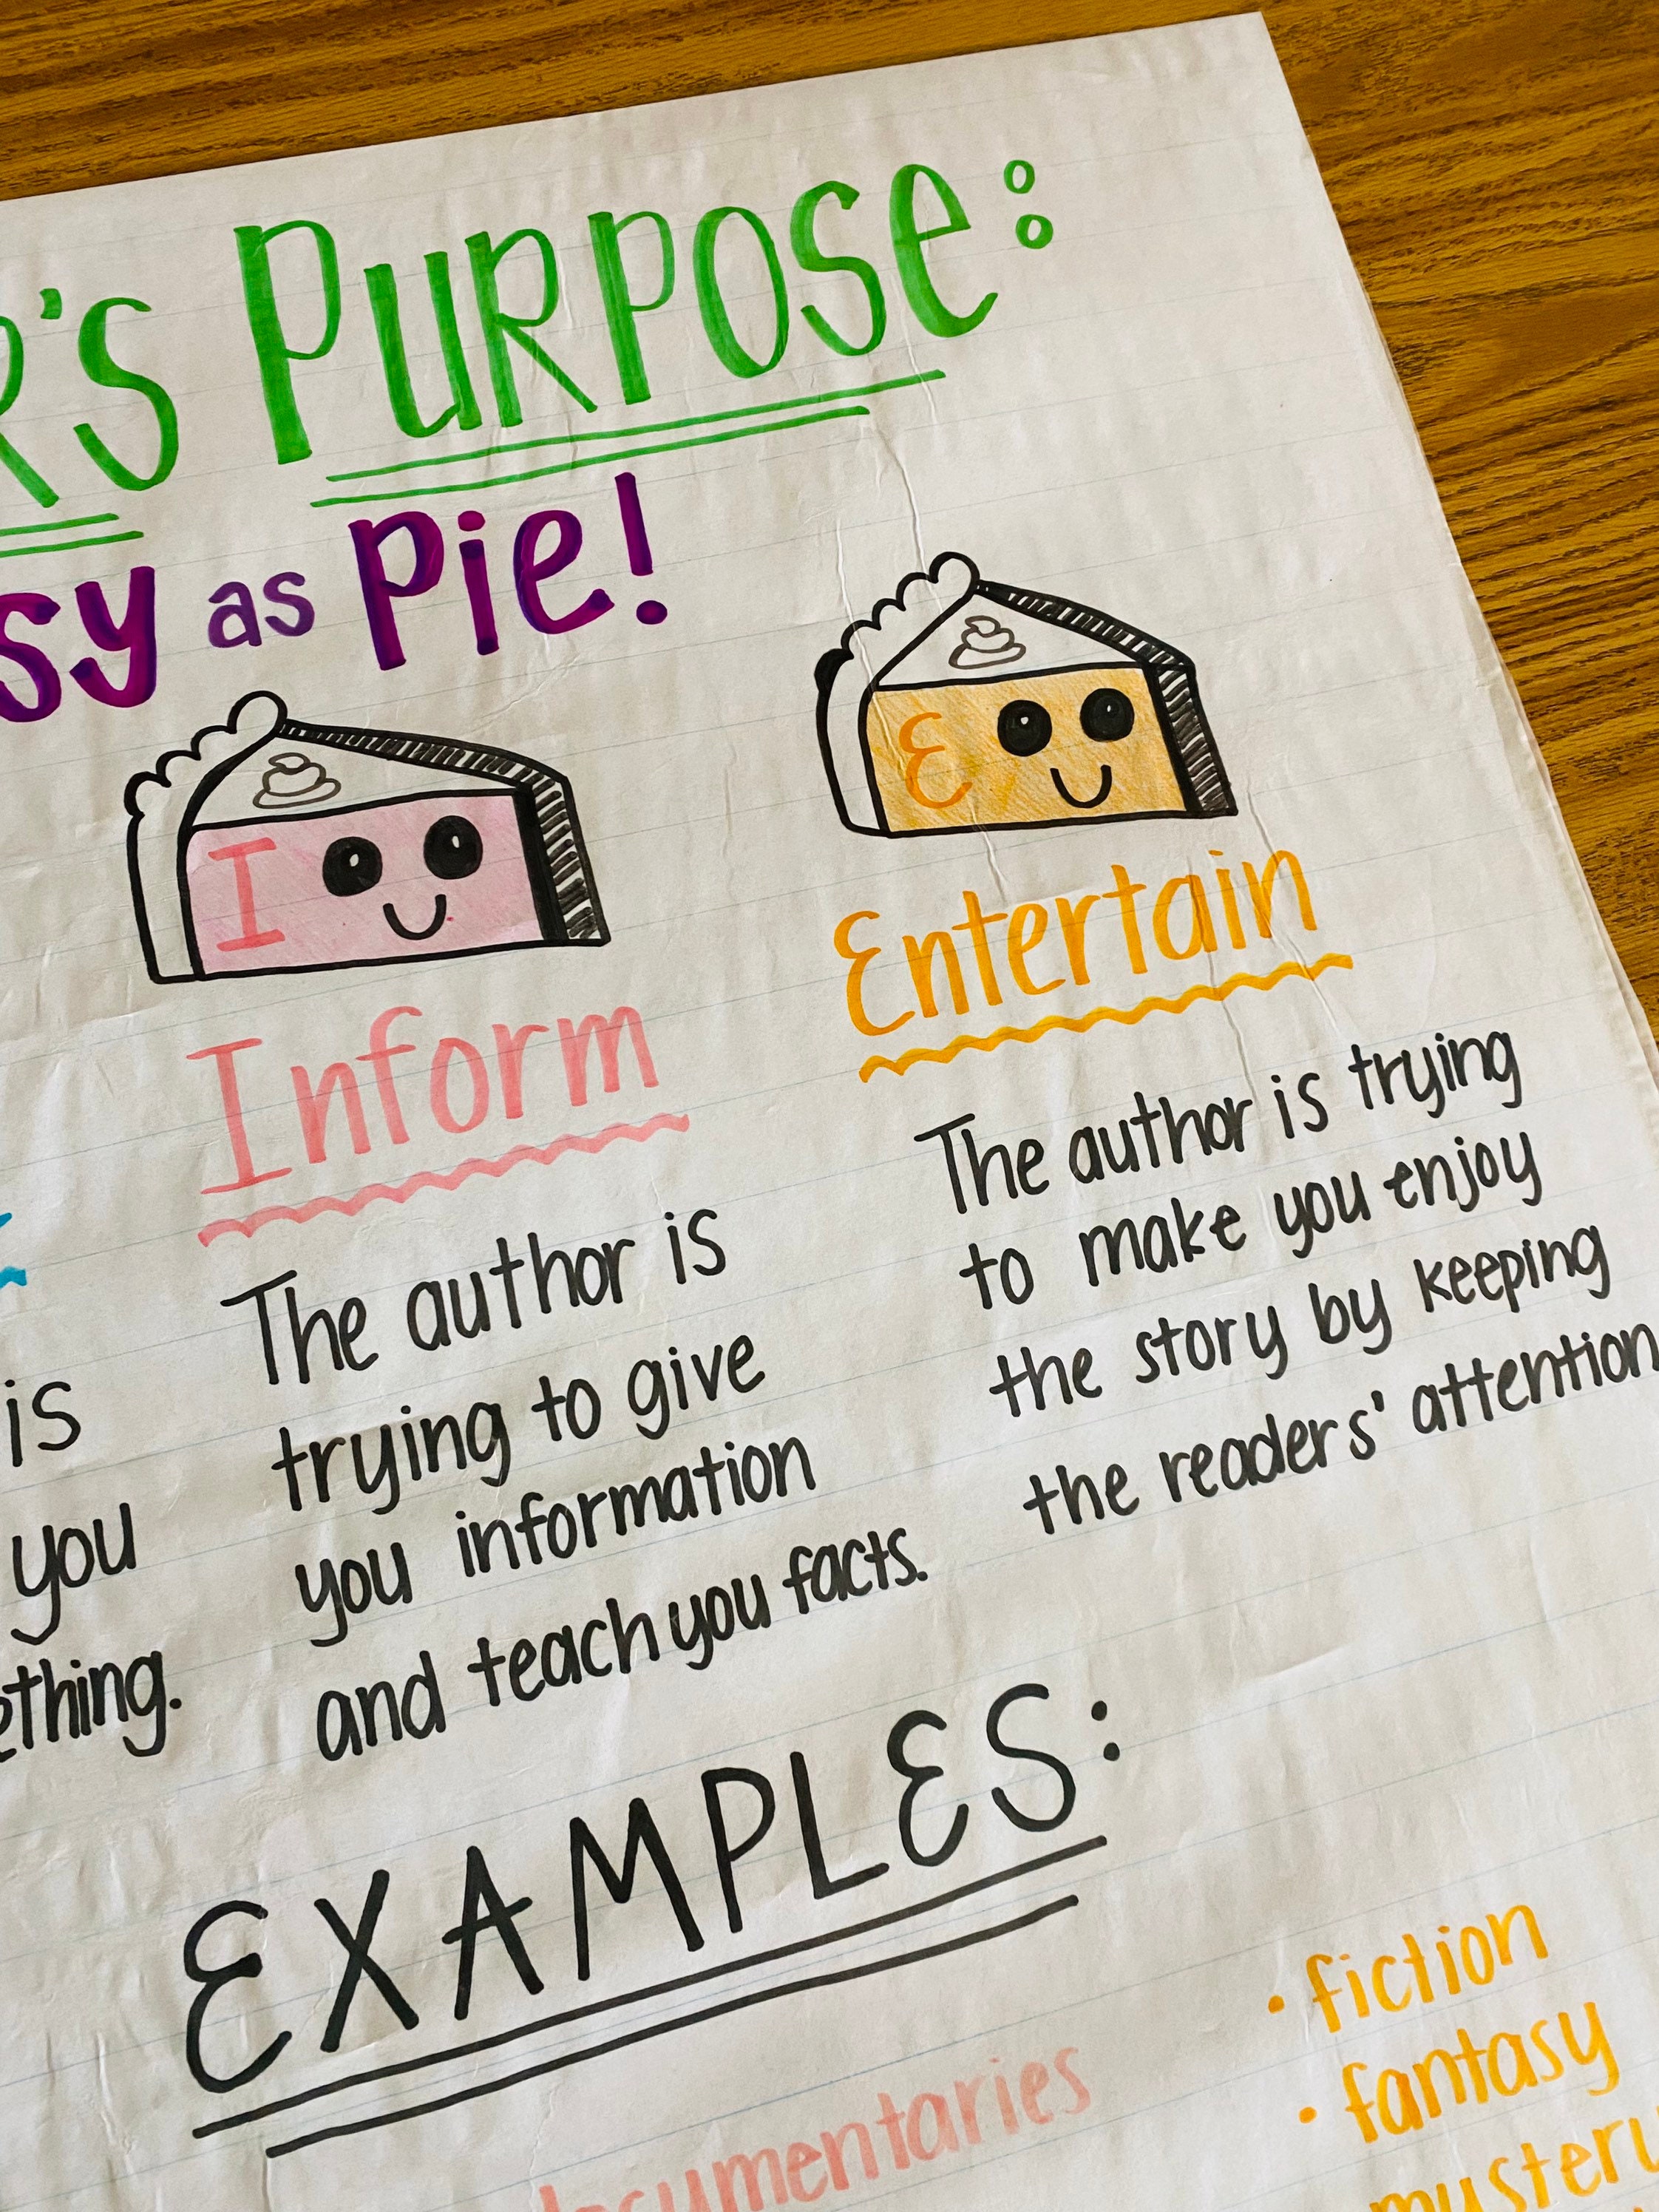 R's Purpose:
sy as Pie!
I
E
Inform
Entertain
is
you
thing.
The author is
trying to give
you information
and teach you facts.
The author is trying
to make you enjoy
the story by keeping
the readers' attention
EXAMPLES:
documentaries
• fiction
• fantasy
mystery